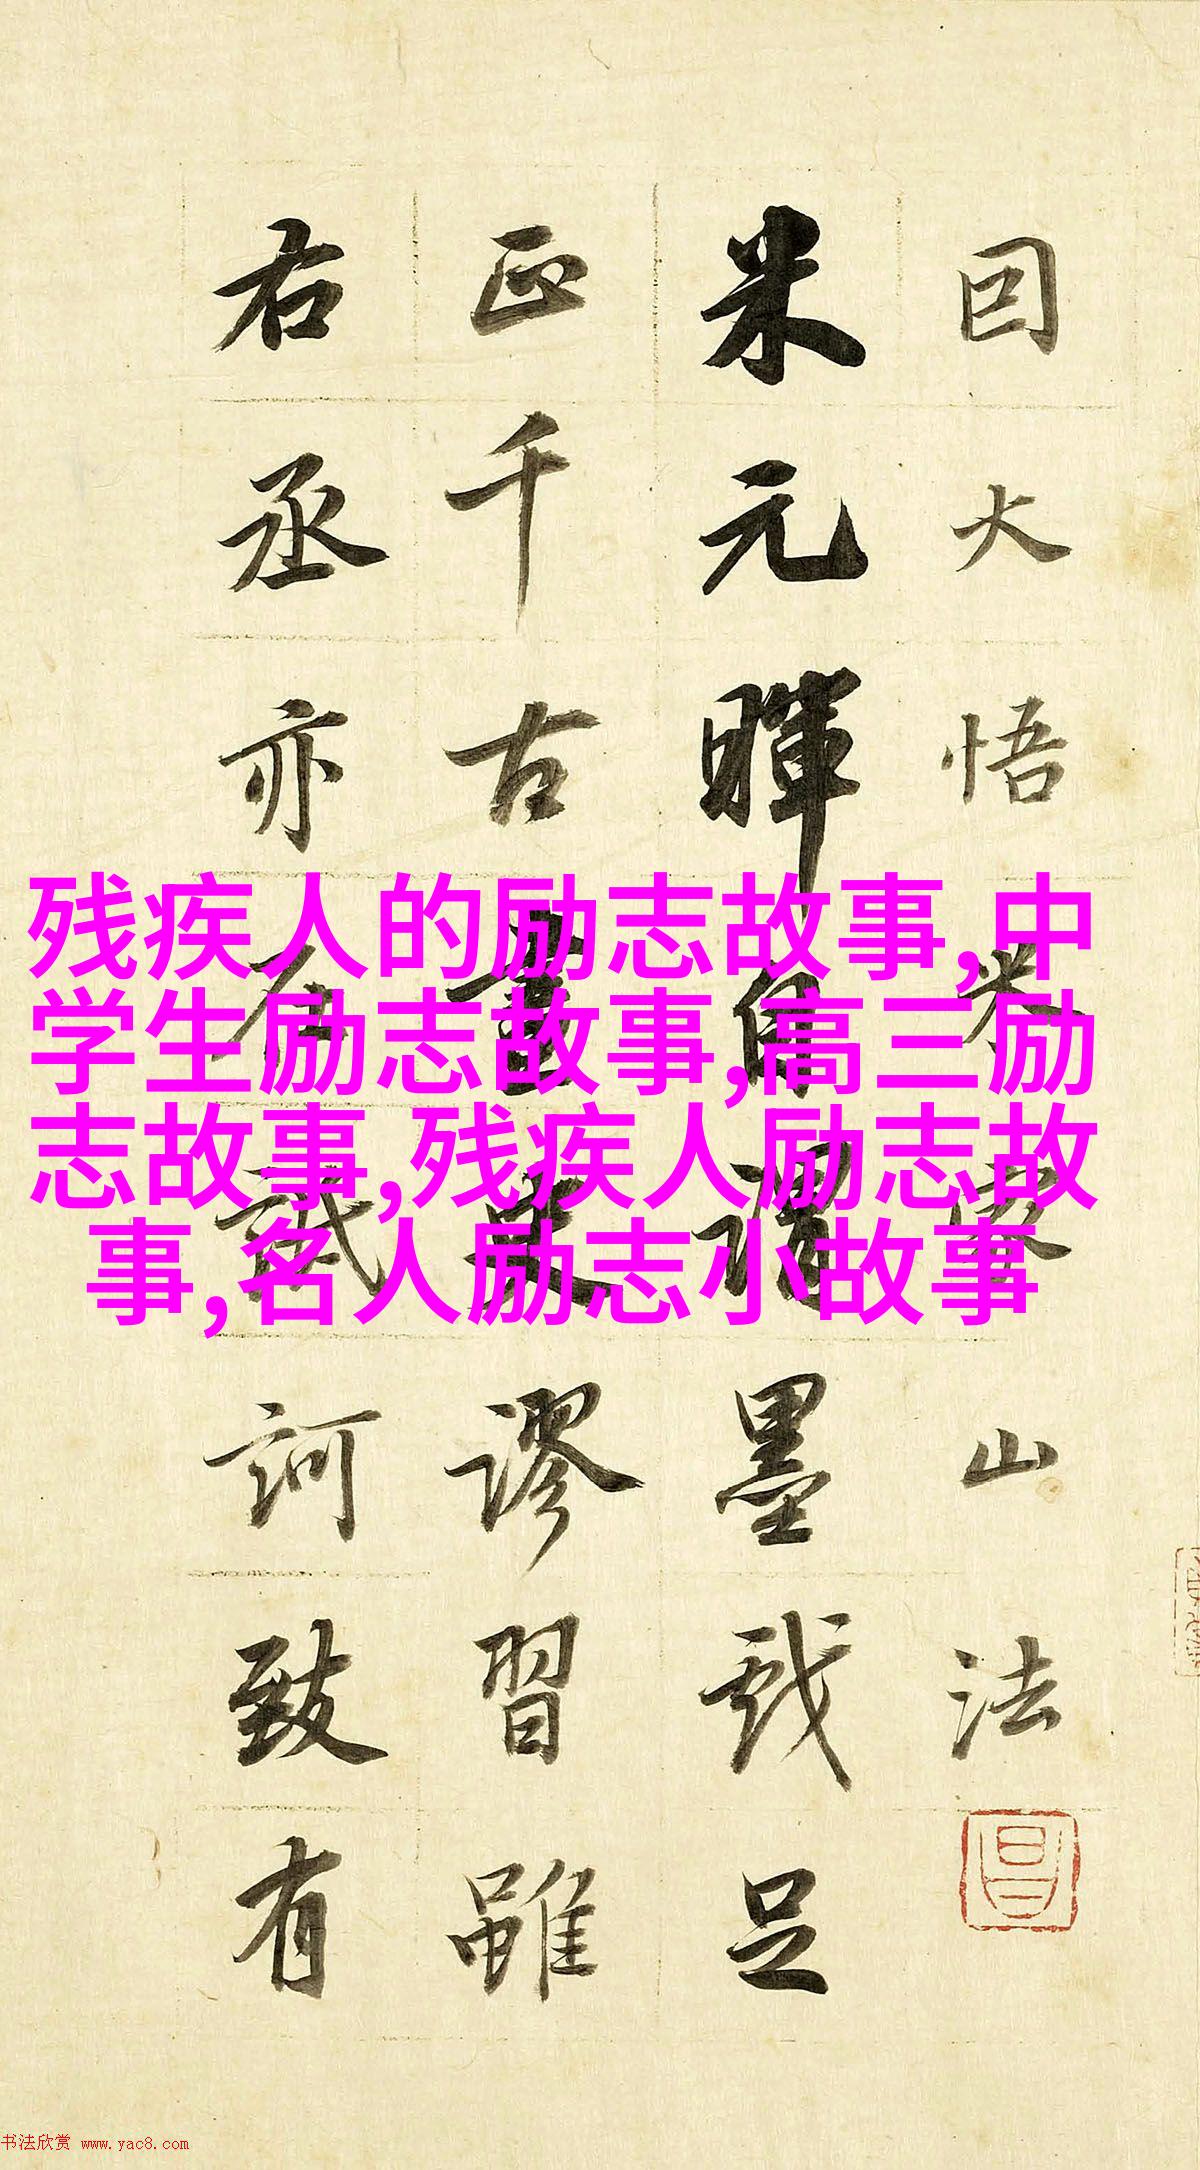 因大悟米家山法
米元暉自謂墨戲足
正千古畫史謬習雖
右丞亦在詆訶致有
残疾人的励志故事,中
学生励志故事,高三励
志故事,残疾人励志故
事,名人励志小故事
昌
书法欣赏 www.yac8.com